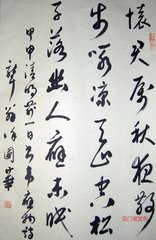 懷君屬秋夜散
步咏涼天空山松
子落幽人應未眠
甲申清明前一日書韋應物詩